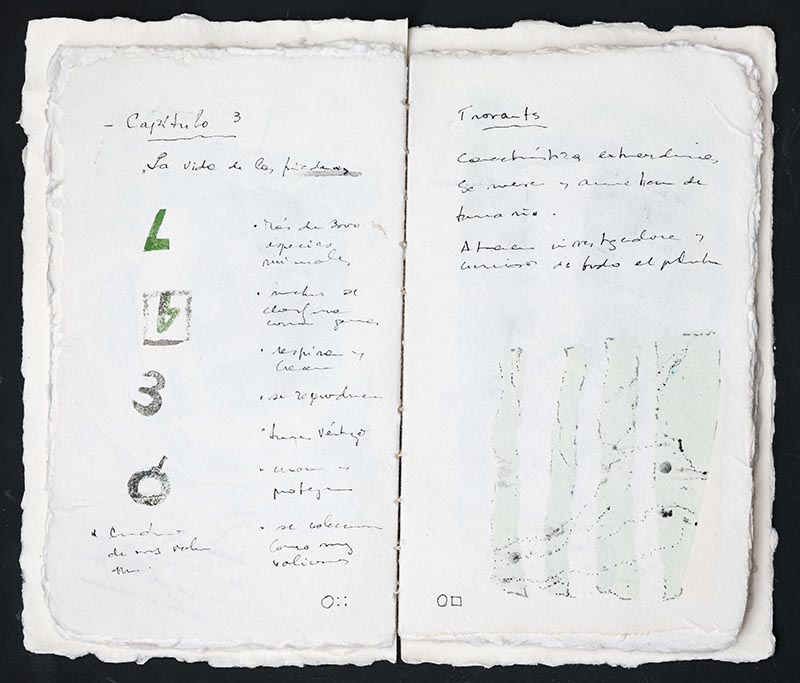 - Capítulo 3
La vida de las piedras
• Más de 3000
especies
minerales
• muchas se
clasifican
como gemas
• respiran y
crecen
• se reproducen
• tienen vértigo
• curan y
protegen
• se coleccionan
como muy
valiosas
3
6
de
Trovants
Característica extraordinaria
Se mueven y aumentan de
tamaño.
Atraen investigadores y
curiosos de todo el planeta